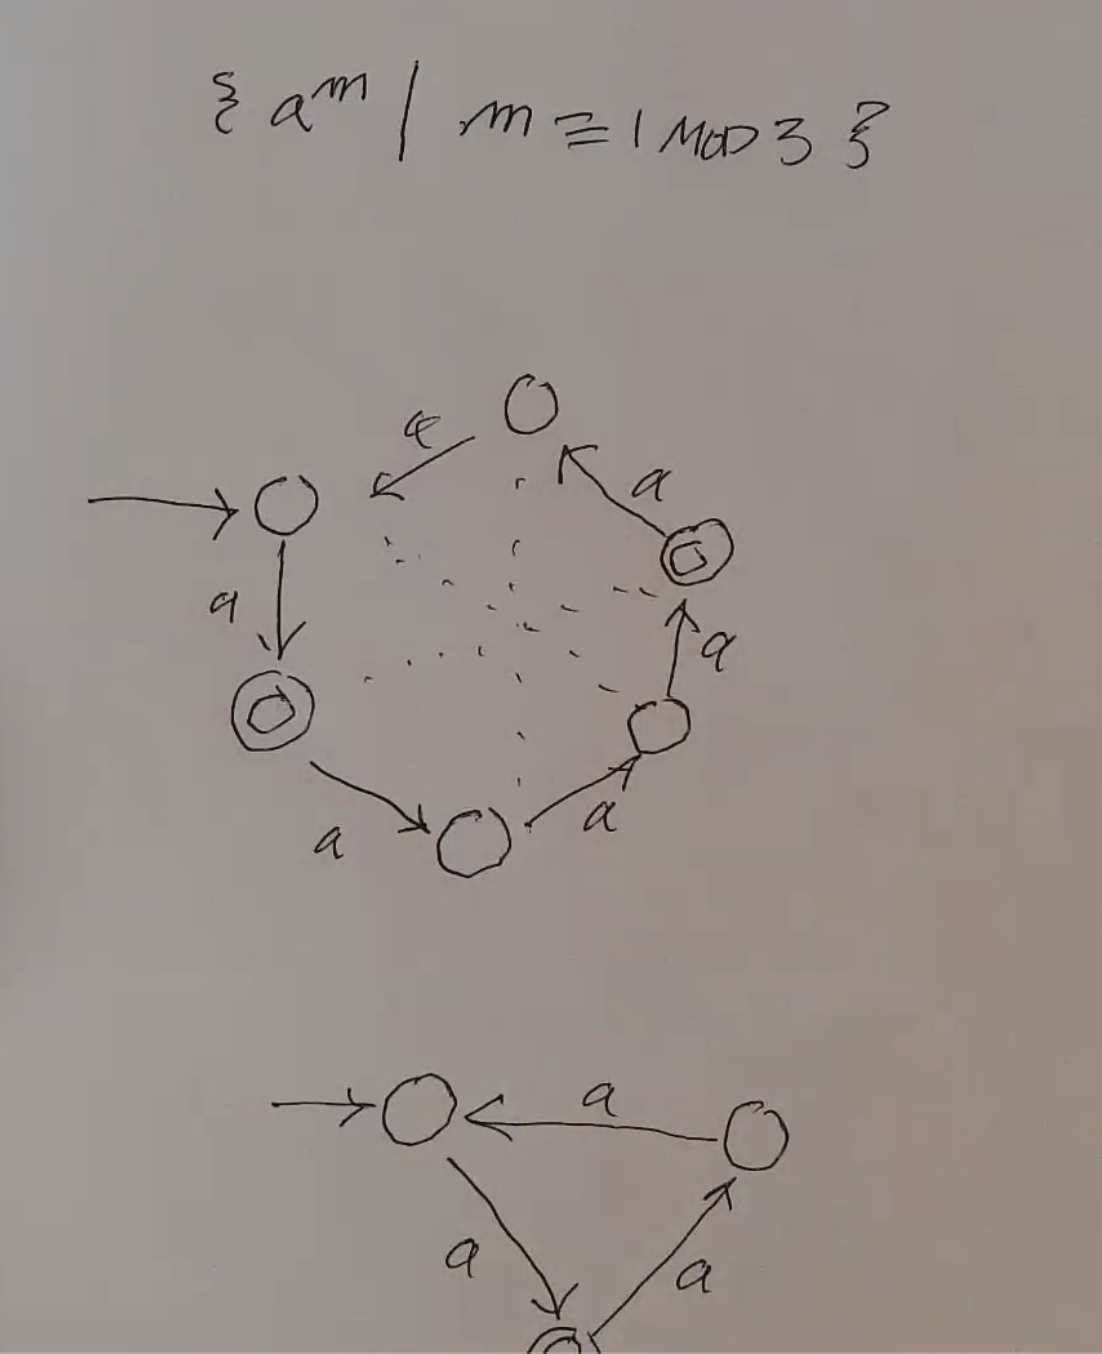 { a^m | m ≡ 1 MOD 3 }
a
a
a
a
a
a
a
a
a